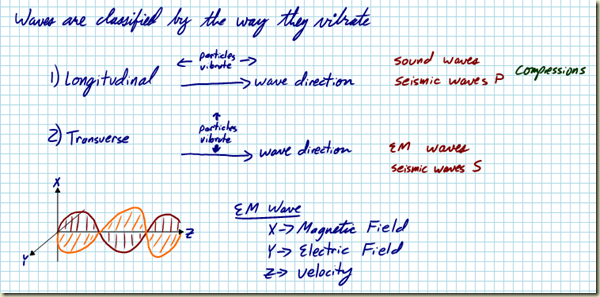 Waves are classified by the way they vibrate
1) Longitudinal
particles
vibrate
wave direction
sound waves
seismic waves P
Compressions
2) Transverse
particles
vibrate
wave direction
EM waves
seismic waves S
X
Y
Z
EM Wave
X → Magnetic Field
Y → Electric Field
Z → velocity